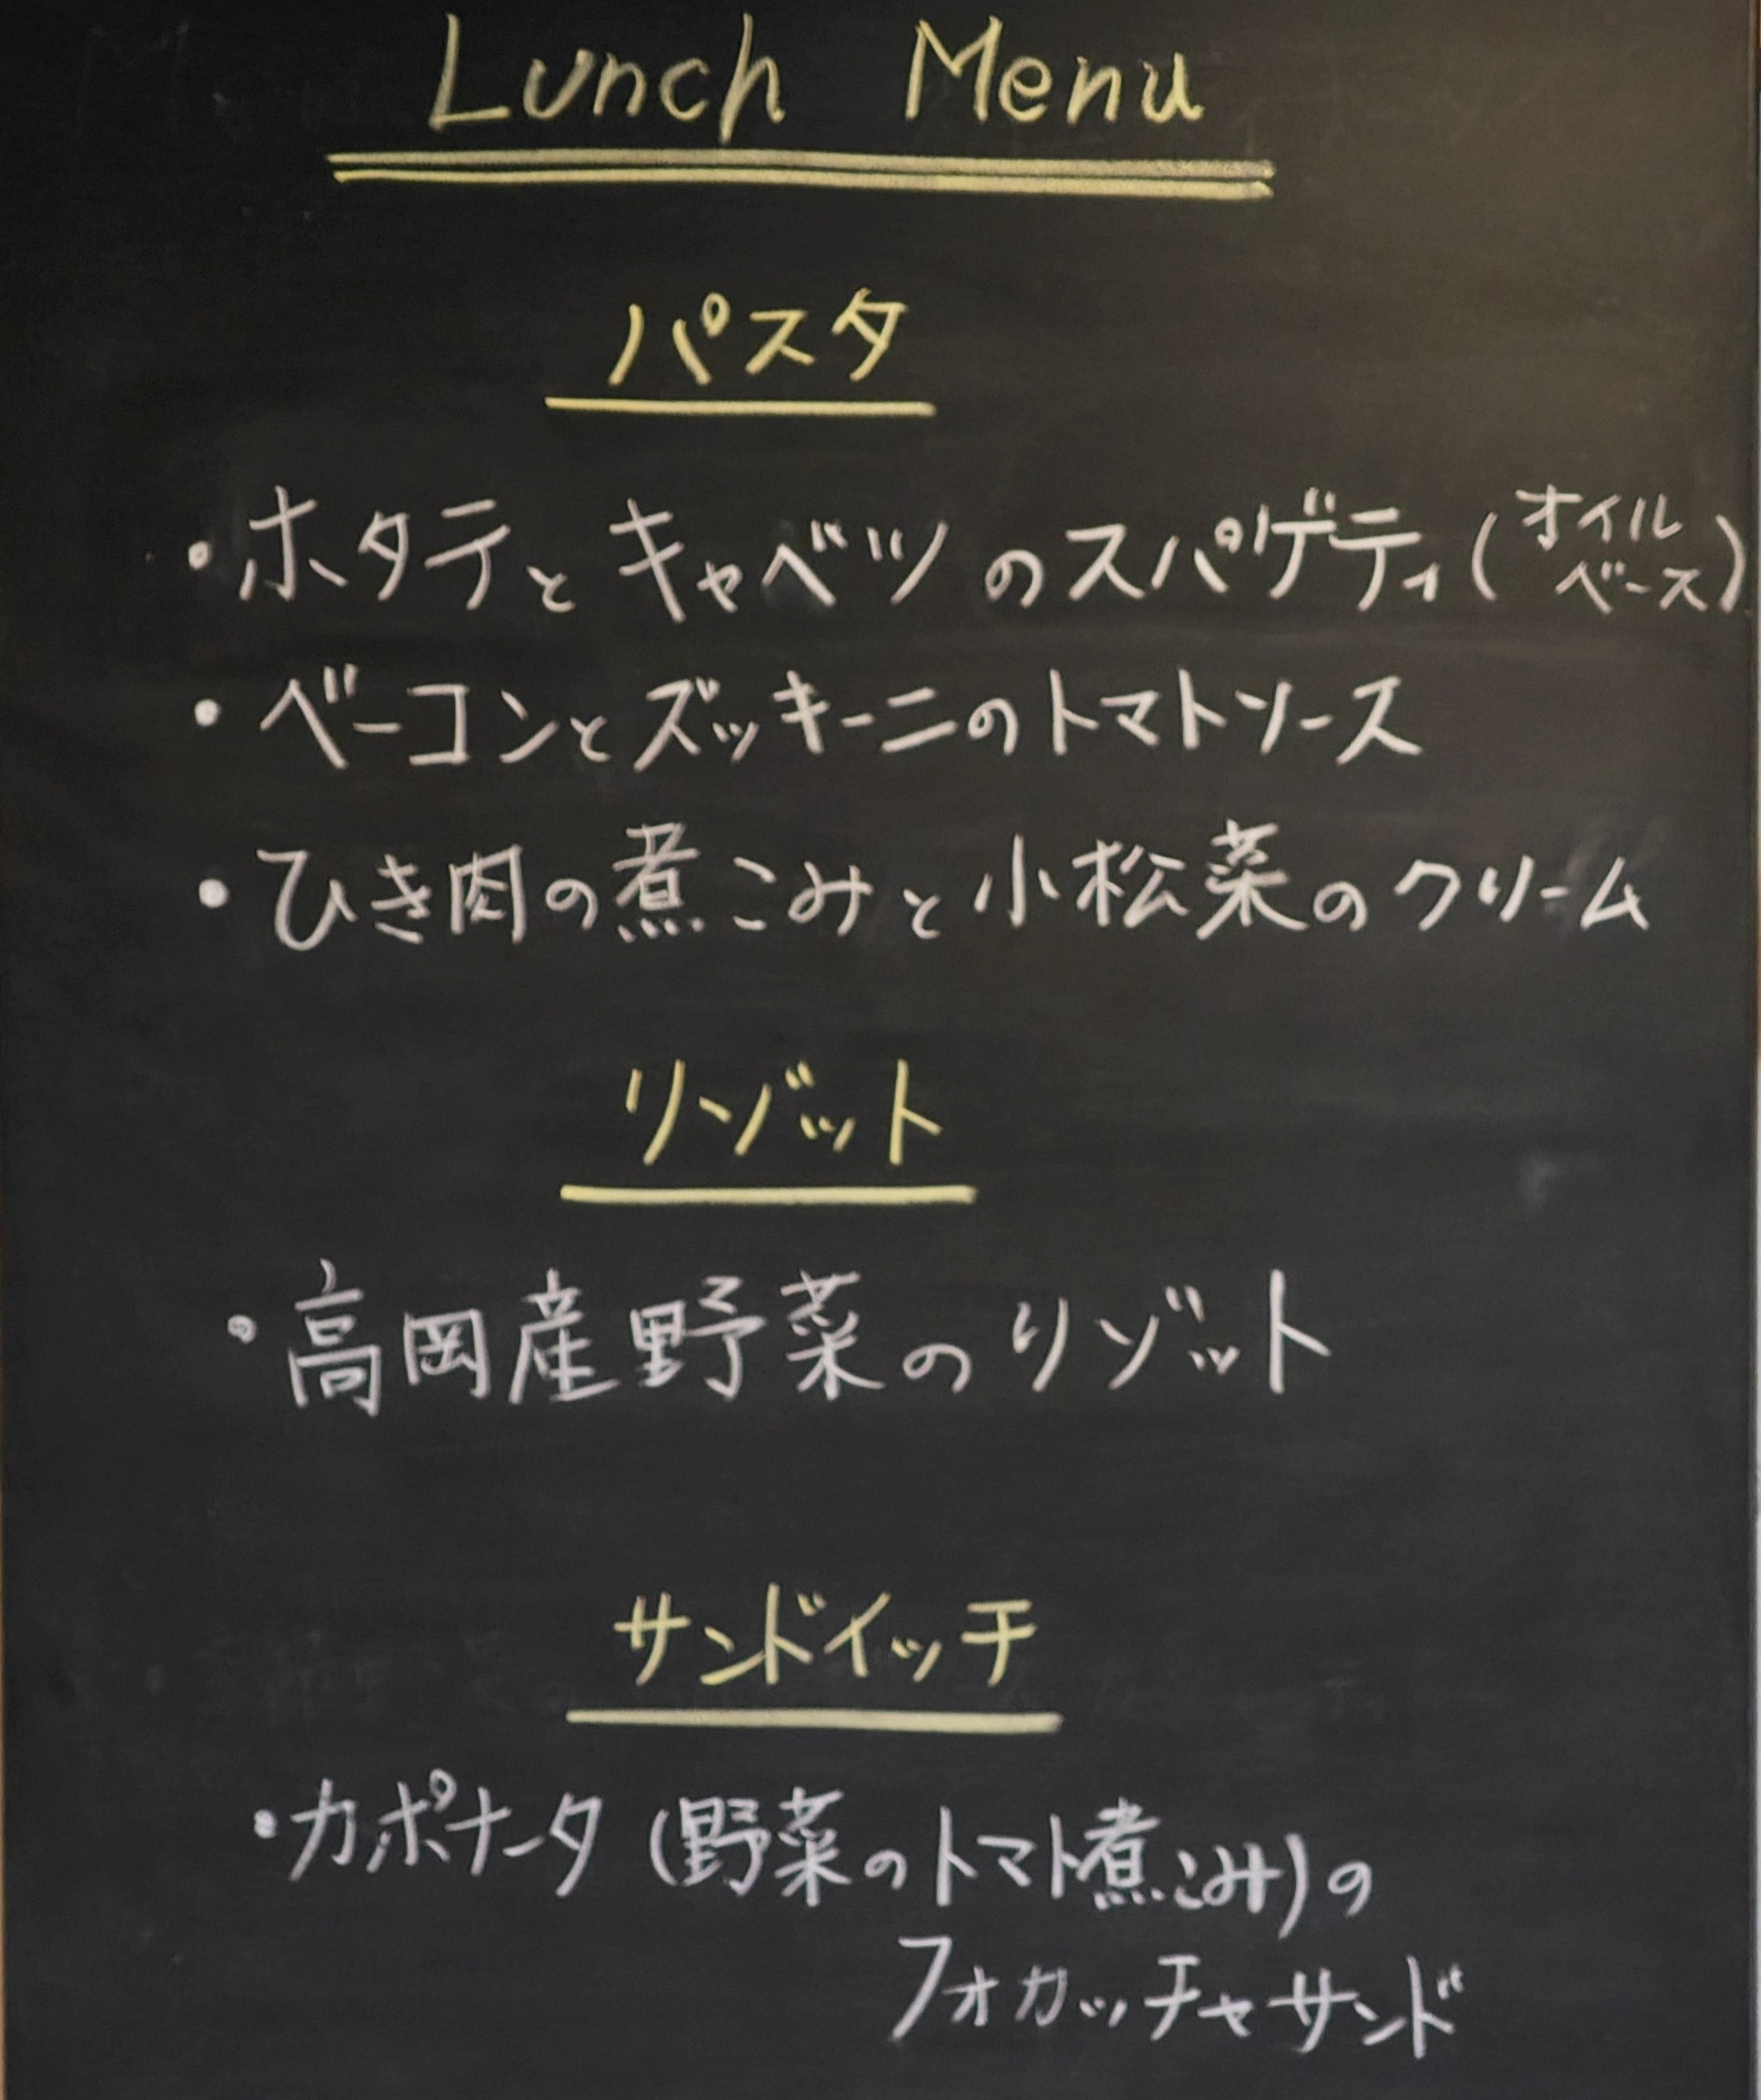 Lunch Menu
パスタ
・ホタテとキャベツのスパゲティ(オイルベース)
・ベーコンとズッキーニのトマトソース
・ひき肉の煮こみと小松菜のクリーム
リゾット
・高岡産野菜のリゾット
サンドイッチ
・カポナータ(野菜のトマト煮こみ)の
フォカッチャサンド